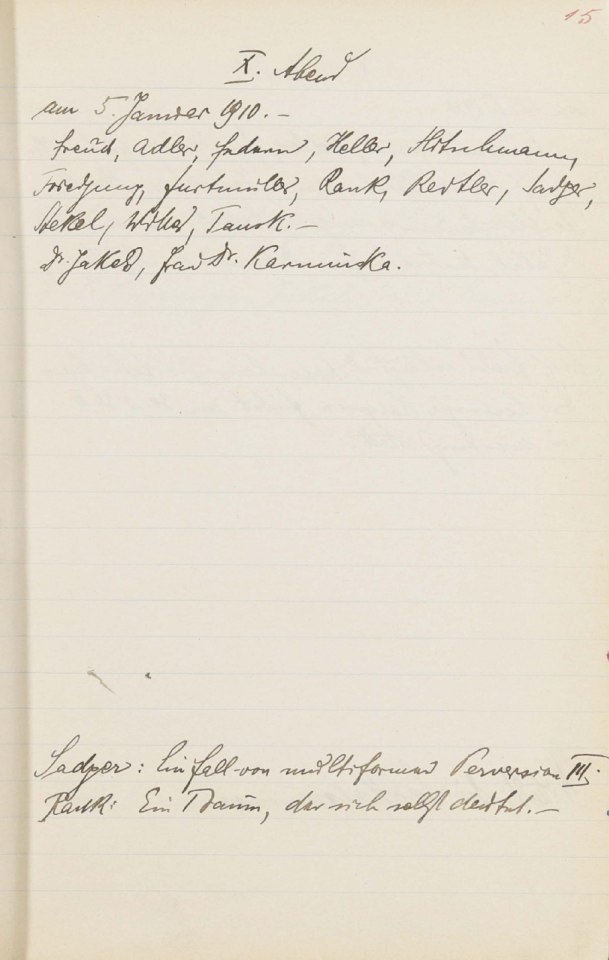 15
X. Abend
am 5. Januar 1910.–
Freud, Adler, Federn, Heller, Hitschmann,
Friedjung, Furtmüller, Rank, Reitler, Sadger,
Stekel, Tausk.–
Dr. Jakob, Frau Dr. Karminska.
Sadger: Ein Fall von multiformer Perversion III.
Rank: Ein Traum, der sich selbst deutet.–